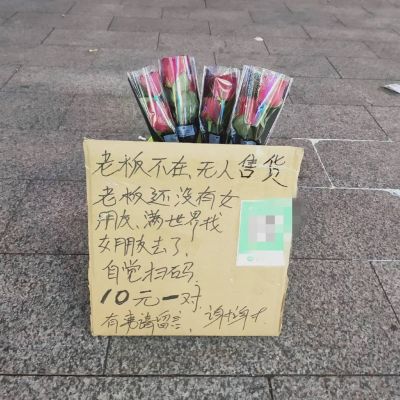 老板不在、无人售货
老板还没有女
朋友、满世界找
女朋友去了、
自觉扫码
10元一对
有事请留言、谢谢!